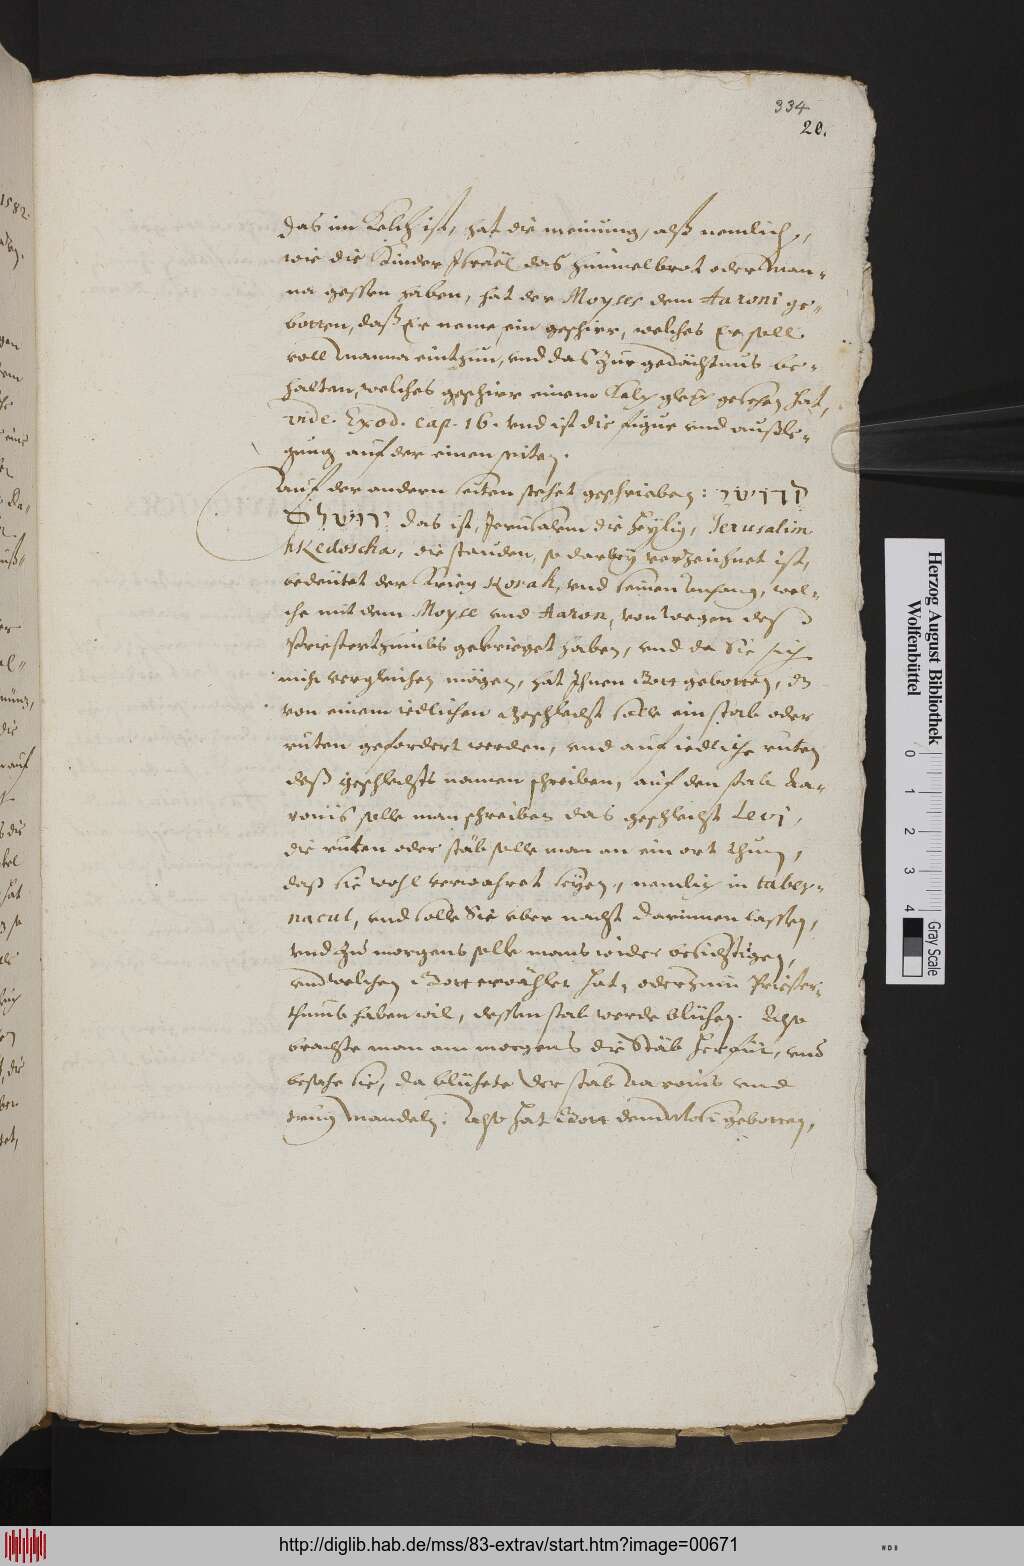 334
20.
das im Kelch ist, hat die meinung, alß nemlich,
wie die Kinder Israël das himmelbrot oder Man-
na gessen haben, hat der Moyses dem Aaroni ge-
botten, daß Er neme ein geschirr, welches Er soll
voll Manna einthun, vnd das zur gedächtnus be-
halten, welches geschirr einem Kelch gleich gesehen hat,
vide. Exod. cap. 16. vnd ist die figur vnd außle-
gung auf der einen seiten.
Auf der andern seiten stehet geschrieben:
das ist, Jerusalem die Heylig, Jerusalim
hKedoscha, die stauden, so darbey verzeichnet ist,
bedeütet der Krieg Korah, vnd seinen anhang, wel-
che mit dem Moyse vnd Aaron, von wegen des
Priesterthumbs gekrieget haben, vnd da Sie sich
nicht vergleichen mögen, hat Ihnen Gott gebotten, dz
von einem iedlichen Geschlecht solle ein stab oder
ruten gefordert werden, vnd auf iedliche ruten
deß geschlechts namen schreiben, auf den stab Aa-
ronis solle man schreiben das geschlecht Levj,
die ruten oder stäb solle man an ein ort thun,
daß sie wohl verwahret seyen, nemlich in taber-
nacul, vnd solle Sie vber nacht darinnen lassen,
vnd zu morgens solle mans wider besichtigen,
vnd welchen Gott erwählet hat, oder zum Priester-
thumb haben wil, dessen stab werde blühen. Also
brachte man am morgens die Stäb herfür, vnd
besahe sie, da blühete der stab Aarons vnd
trug Mandeln. Also hat Gott dem Mosi gebotten,
1582.
Herzog August Bibliothek
Wolfenbüttel
0 1 2 3 4
Gray Scale
http://diglib.hab.de/mss/83-extrav/start.htm?image=00671